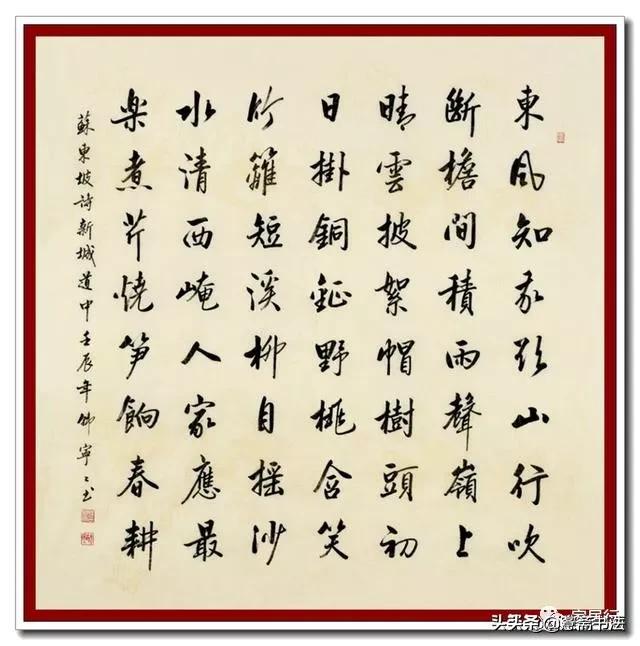 東風知我欲山行吹
斷檐間積雨聲嶺上
晴雲披絮帽樹頭初
日掛銅鉦野桃含笑
竹籬短溪柳自摇沙
水清西崦人家應最
楽煮芹燒笋餉春耕
蘇東坡詩新城道中壬辰年寧书
头条@斋书法